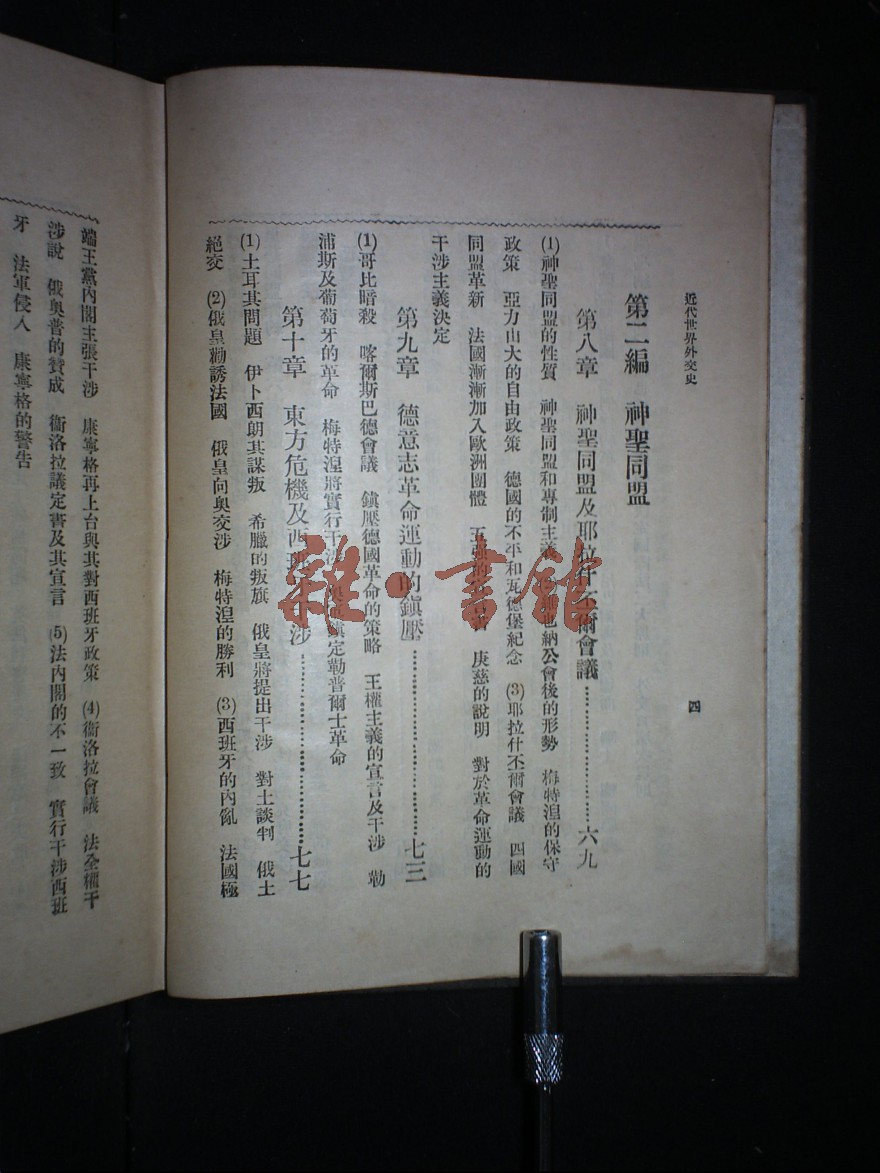 近代世界外交史
四
第二編　神聖同盟
第八章　神聖同盟及耶拉什丕爾會議……六九
(1)神聖同盟的性質　神聖同盟和專制主義　維也納公會後的形勢　梅特涅的保守
政策　亞力山大的自由政策　德國的不平和瓦德堡紀念　(3)耶拉什丕爾會議　四國
同盟革新　法國漸漸加入歐洲團體　五強的　庚慈的說明　對於革命運動的
干涉主義決定
第九章　德意志革命運動的鎭壓……七三
(1)哥比暗殺　喀爾斯巴德會議　鎭壓德國革命的策略　王權主義的宣言及干涉　勒
浦斯及葡萄牙的革命　梅特涅將實行干涉　鎭定勒普爾士革命
第十章　東方危機及西班　涉……七七
(1)土耳其問題　伊卜西朗其謀叛　希臘的叛旗　俄皇將提出干涉　對土談判　俄土
絕交　(2)俄皇勸誘法國　俄皇向奧交涉　梅特涅的勝利　(3)西班牙的內亂　法國極
端王黨內閣主張干涉　康寧格再上台與其對西班牙政策　(4)衞洛拉會議　法全權干
涉說　俄奧普的贊成　衞洛拉議定書及其宣言　(5)法內閣的不一致　實行干涉西班
牙　法軍侵入　康寧格的警告
雜·書館